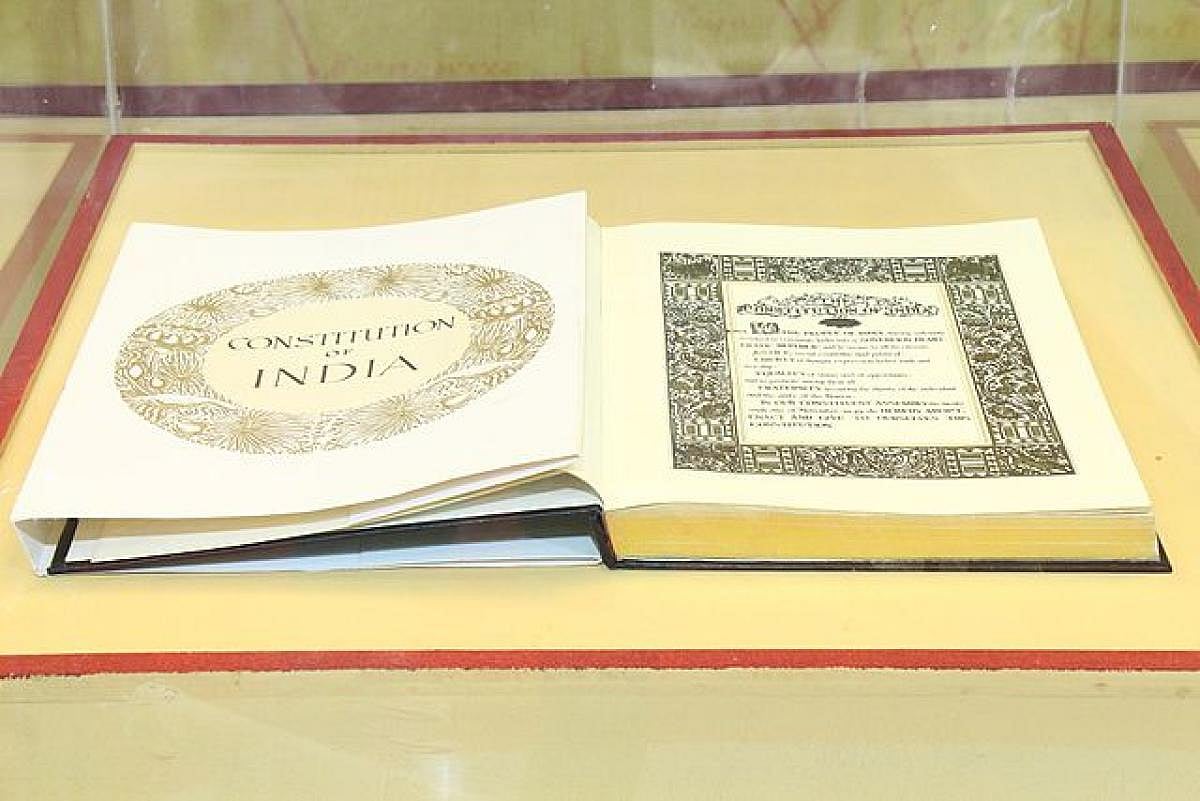 CONSTITUTION
OF
INDIA
CONSTITUTION OF INDIA
THE PEOPLE OF INDIA having
resolved to constitute India into a SOVEREIGN DEMO-
CRATIC REPUBLIC and to secure to all
JUSTICE, social, economic and political
LIBERTY of thought, expression, belief, faith and
worship
EQUALITY of status and of opportunity
and to promote among them all
FRATERNITY assuring the dignity of the individual
and the unity of the Nation
IN OUR CONSTITUENT ASSEMBLY this twenty-
sixth day of November, 1949, do HEREBY ADOPT,
ENACT AND GIVE TO OURSELVES THIS
CONSTITUTION.